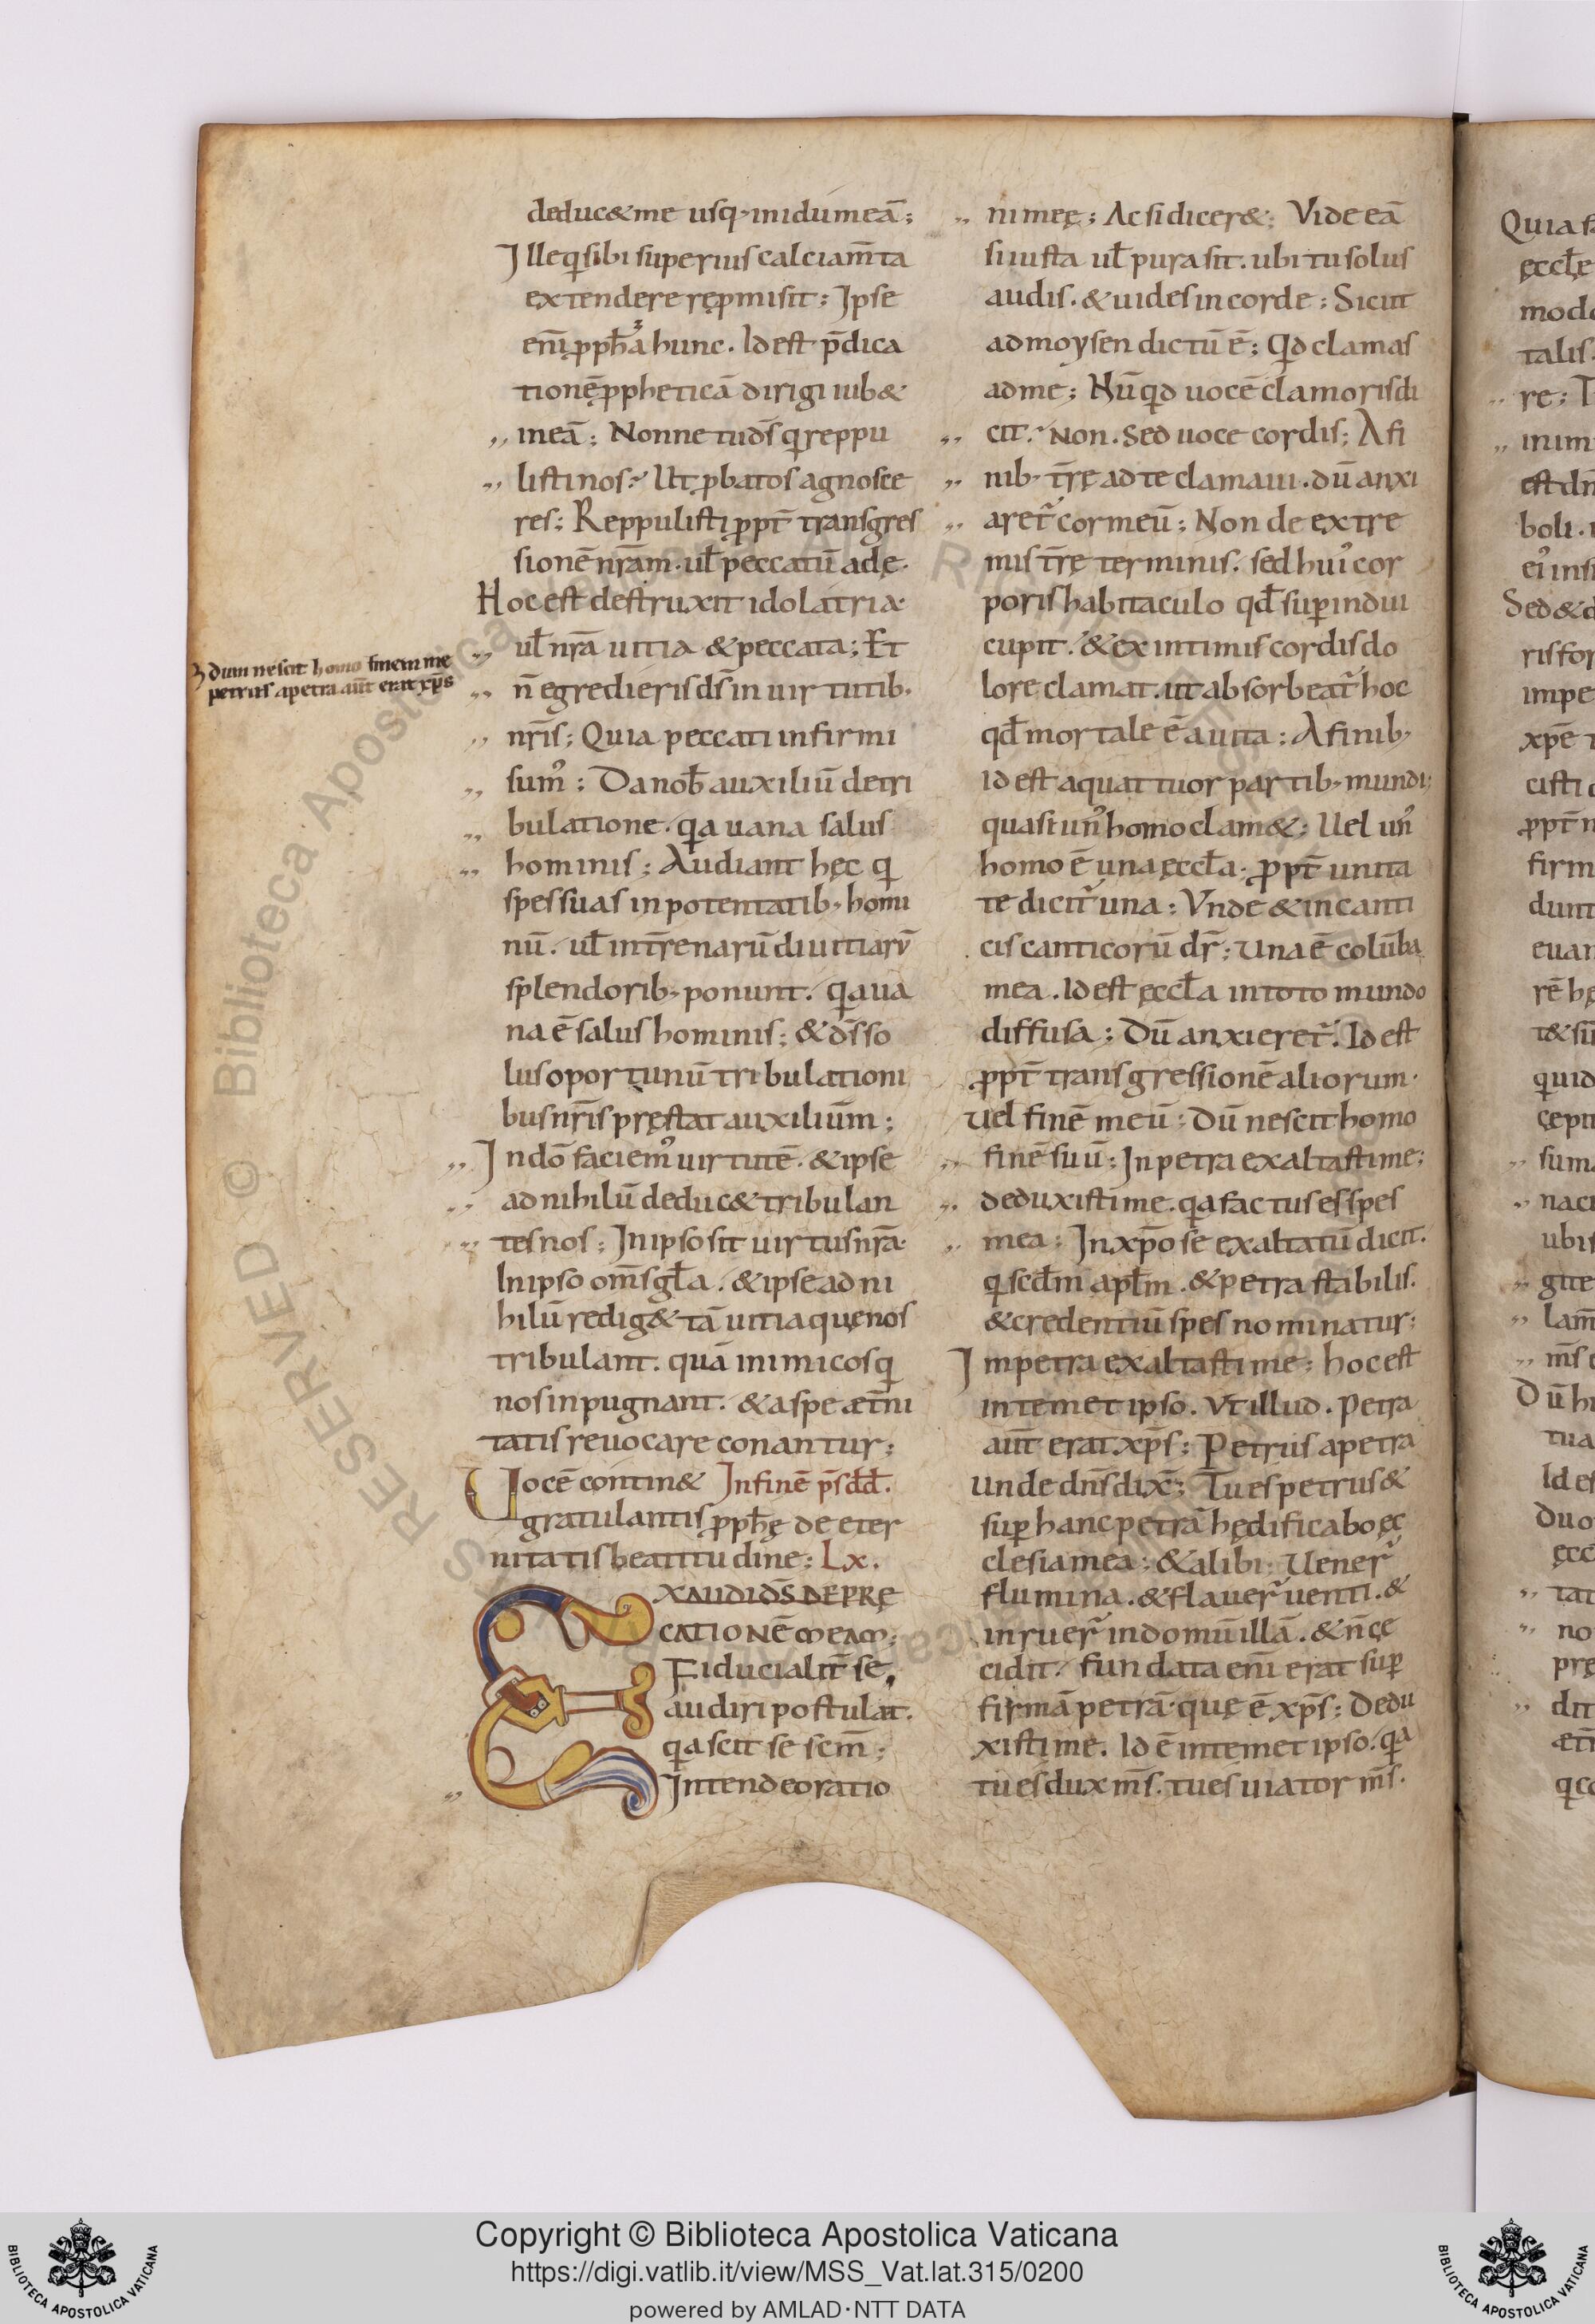 deduc&me usq, inidumeā;
Ille q̄ sibi superius calciam̄ta
extendere rępmisit; Ipse
enī pph̄a hunc. Id est p̄dica
tionē ppheticā dirigi iub&
ineā; Nonne tu ds̄ q̄ reppu
listi nos? Ut pbatos agnosce
res; Reppulisti ppt̄ transgres
sionē nrām. ul̄ peccatū adę.
Hoc est destruxit idolatria.
ul̄ nrā uitia & peccata; Et
n̄ egredieris ds̄ in uirtutib.
nrīs; Quia peccati infirmi
sum᾿; Da nob̄ auxiliū detri
bulatione. qa uana salus
hominis; Audiant hęc q
spes suas in potentatib, homi
nū. ul̄ in tr̄renarū diuitiarū
splendorib, ponunt. qa ua
na ē salus hominis; & ds̄ so
lus oportunū tribulationi
bus nrīs pręstat auxiliūm;
In dō faciem᾿ uirtutē. & ipse
ad nihilū deduc& tribulan
tes nos; In ipso sit uirtus nrā.
In ipso om̄s gl̄a. & ipse ad ni
hilū redig& tā uitia quę nos
tribulant. quā inimicos q
nos inpugnant. & a spe æt̄ni
tatis reuocare conantur;
Uocē contin& In finē ps̄ dd̄.
gratulantis pph̄ę de eter
nitatis beatitudine; Lx.
EXAUDI DS̄ DEPRE
CATIONĒ MEAM;
Fiducialit̄ se
audiri postulat.
qa scit se scm̄;
Intende oratio
ʒ dum nescit homo finem me
petrus a petra aūt erat xp̄s
ni meę; Ac si dicer&; Vide eā
si iusta ul̄ pura sit. ubi tu solus
audis. & uides in corde; Sicut
ad moysen dictū ē; Qd clamas
ad me; Nūqd uocē clamoris di
cit? Non. Sed uoce cordis; A fi
nib, tr̄ę ad te clamaui. dū anxi
aret᾿ cor meū; Non de extre
mis tr̄ę terminis. sed hui᾿ cor
poris habitaculo qd̄ supindui
cupit. & ex intimis cordis do
lore clamat. ut absorbeat᾿ hoc
qd̄ mortale ē a uita; A finib,
Id est a quattuor partib, mundi;
quasi un᾿ homo clam&; Uel un᾿
homo ē una ęccl̄a; ppt̄ unita
te dicit᾿ una; Vnde & in canti
cis canticorū dr̄; Una ē colūba
mea. Id est ęccl̄a in toto mundo
diffusa; Dū anxieret᾿. Id est
ppt̄ transgressionē aliorum.
Uel finē meū; Dū nescit homo
finē suū; In petra exaltasti me;
deduxisti me. qa factus es spes
mea; In xp̄o se exaltatū dicit.
q scd̄m apl̄m. & petra stabilis.
& credentiū spes nominatur;
In petra exaltasti me; hoc est
in temet ipso. Vt illud. Petra
aūt erat xp̄s; Petrus a petra
unde dn̄s dix̄; Tu es petrus &
sup hanc petrā hędificabo ęc
clesia mea; & alibi; Uener᾿
flumina. & flauer᾿ uenti. &
inruer᾿ in domū illā. & n̄ çe
cidit. fundata enī erat sup
firmā petrā. quę ē xp̄s; Dedu
xisti me. Id ē in temet ipso. qa
tu es dux m̄s. tu es uiator m̄s.
Quia
ęccl̄e
modo
talis.
re;
inim
est dn̄
boli.
ei᾿ ins
Sed & d
ris for
impe
xp̄e
cisti
ppt̄
firm
dunt
euan
rē hę
t& sū
quid
çepit
suma
naci
ubis
gite
lam̄
m̄s
Dū hi
tua
Id es
duo
ęcc
tat
no
prę
dit
æt̄
Copyright © Biblioteca Apostolica Vaticana
https://digi.vatlib.it/view/MSS_Vat.lat.315/0200
powered by AMLAD·NTT DATA
BIBLIOTECA APOSTOLICA VATICANA
BIBLIOTECA APOSTOLICA VATICANA